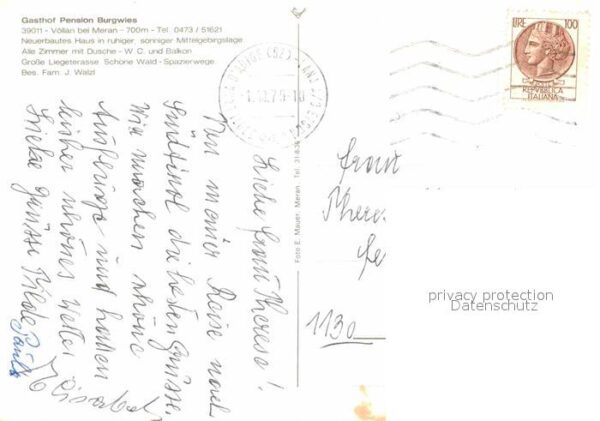 Gasthof Pension Burgwies
39011 - Völlan bei Meran - 700m - Tel. 0473 / 51621
Neuerbautes Haus in ruhiger, sonniger Mittelgebirgslage
Alle Zimmer mit Dusche - W.C. und Balkon
Große Liegeterasse Schöne Wald - Spazierwege
Bes. Fam. J. Walzl
LIRE 100
POSTE
REPVBBLICA
ITALIANA
Liebe Frau Theresa!
Von meiner Reise nach
Südtirol die besten Grüsse.
Wir machen schöne
Ausflüge und haben
bisher schönes Wetter
Liebe Grüsse Hilde
Foto E. Mauer, Meran, Tel.
Frau
There
1130
privacy protection
Datenschutz